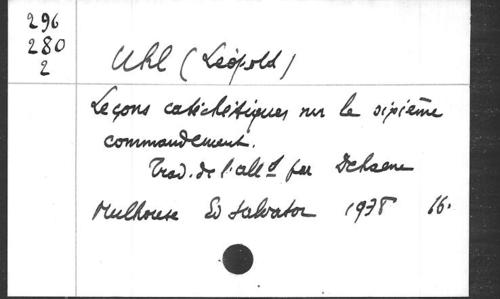 296
280
2
Uhl (Léopold)
Leçons catéchétiques sur le sixième
commandement.
Trad. de l'alld par
Mulhouse Ed Salvator 1938 16.